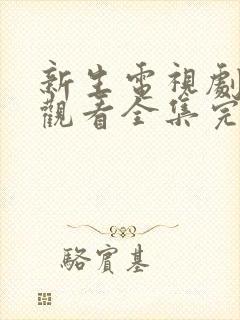 新生電視劇
觀看全集完
駱賓基